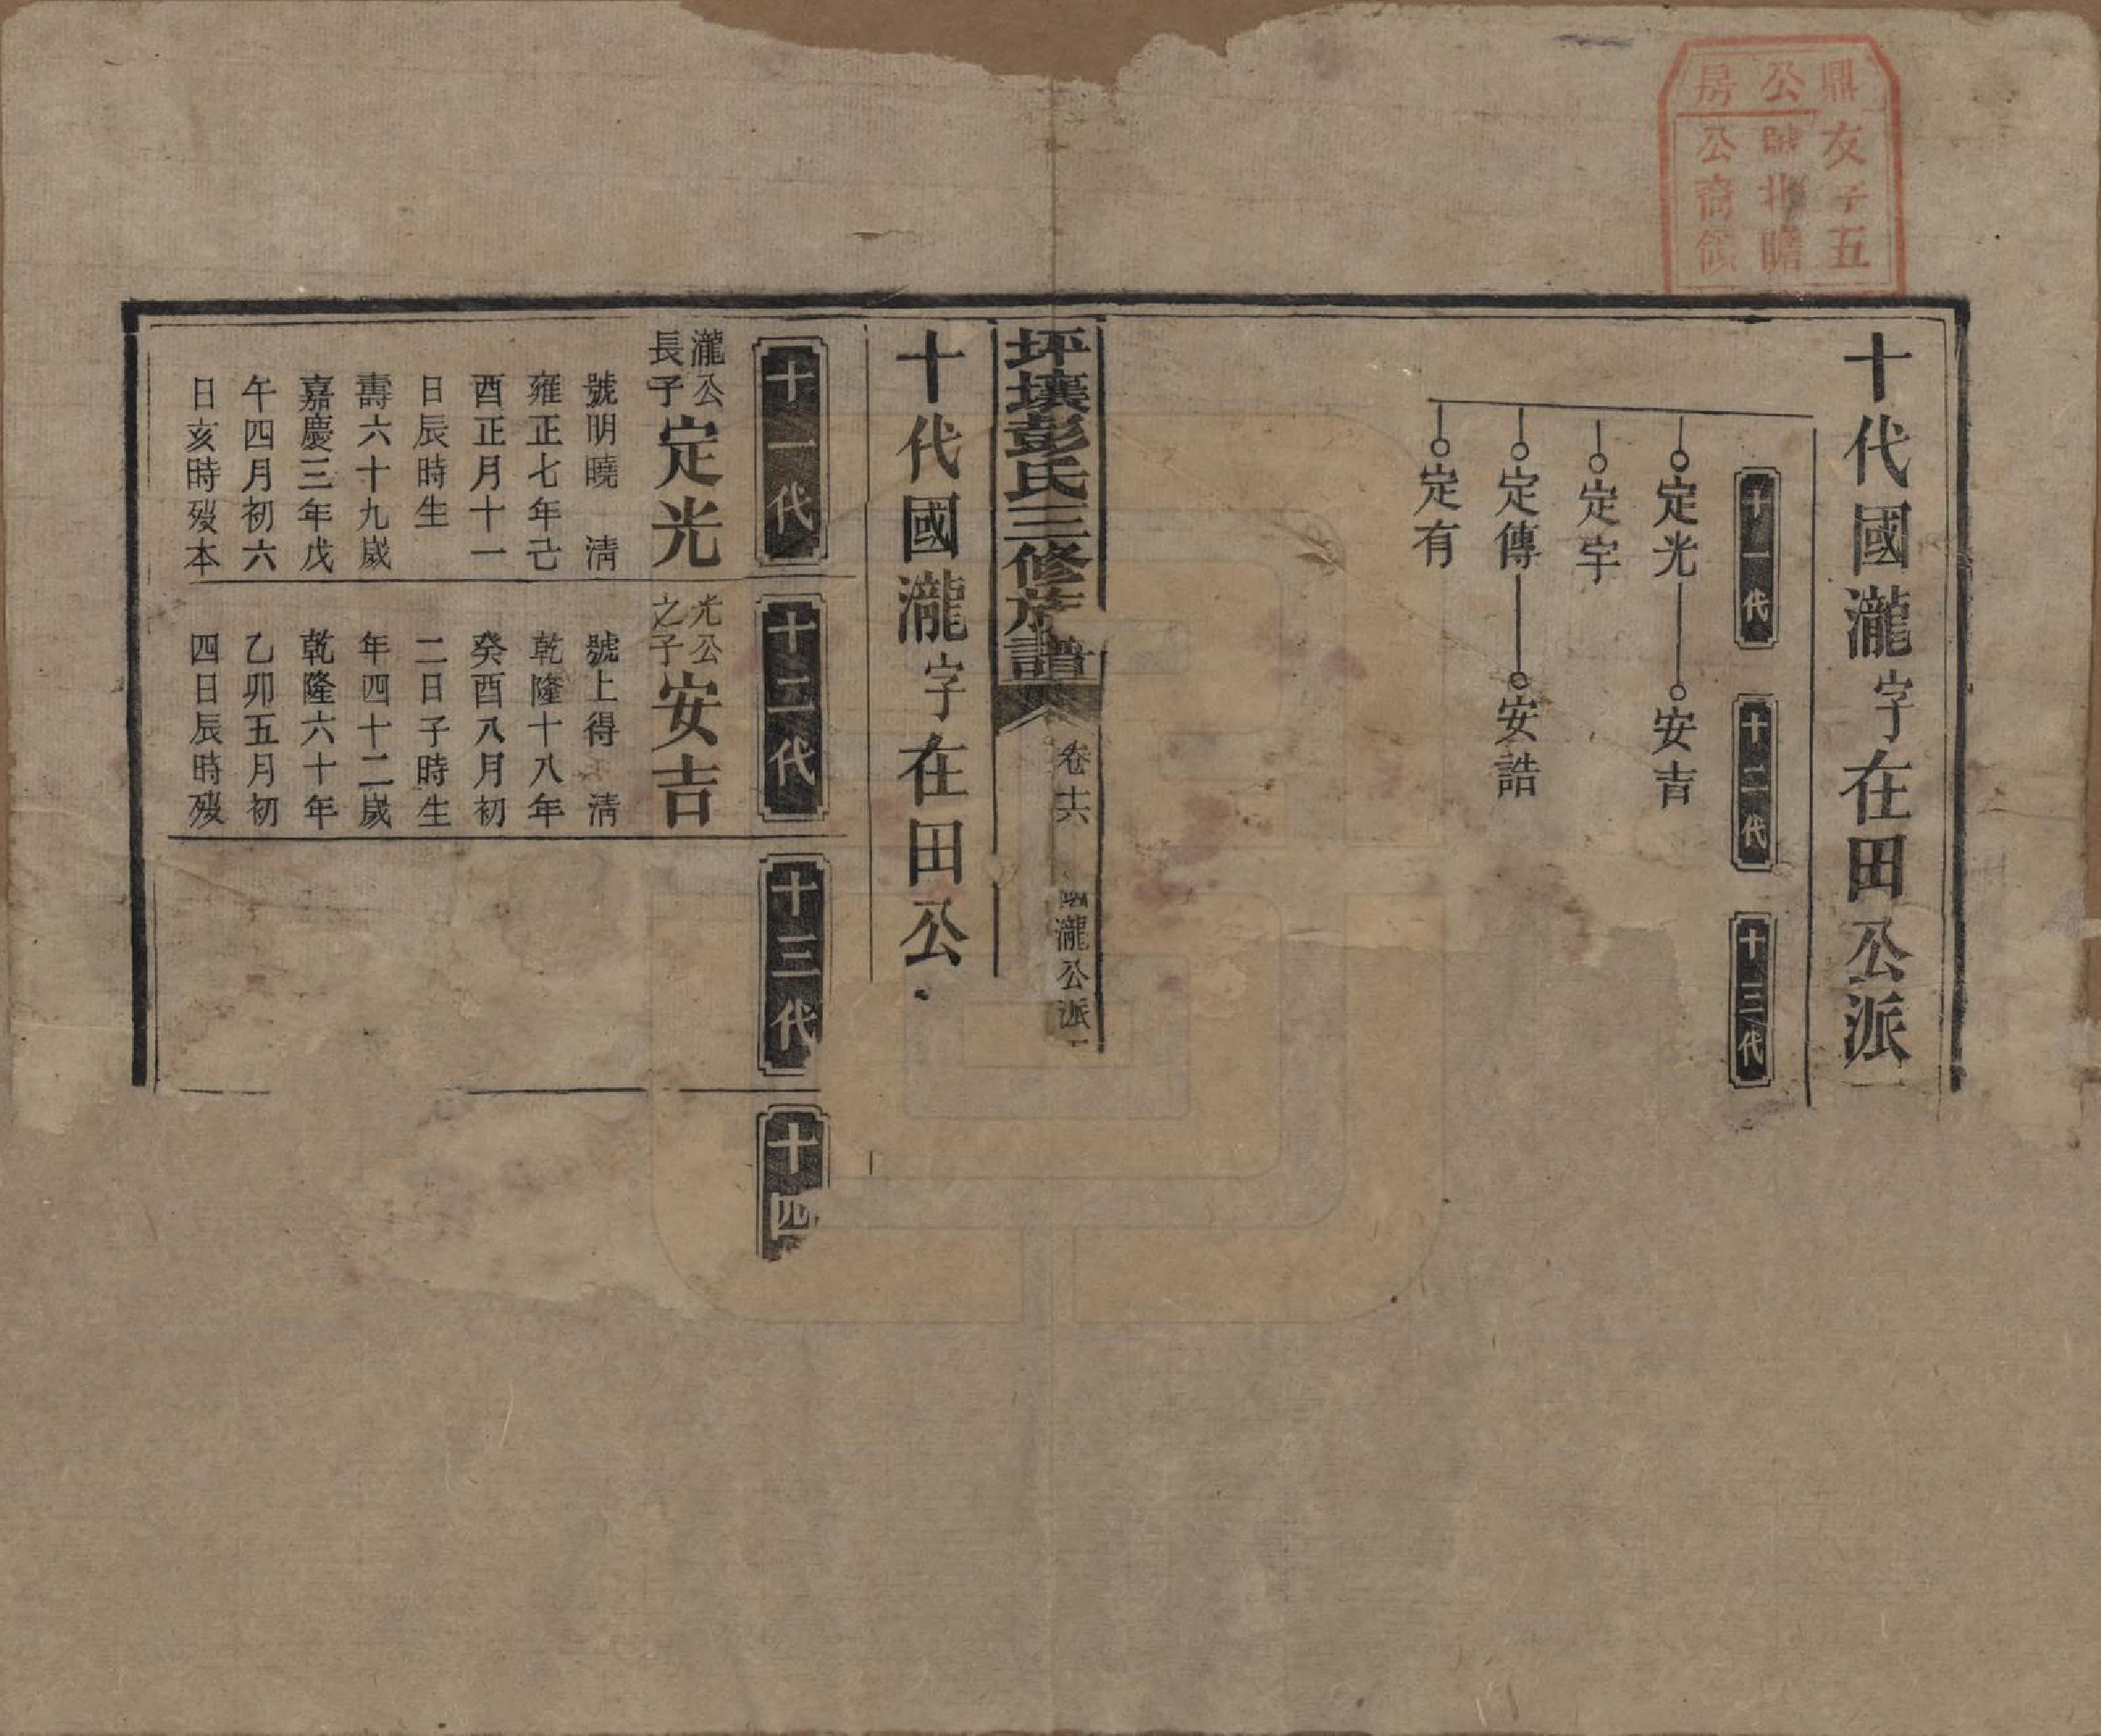 鼎公房
友子五
號北瞻
公裔領
十代國瀧字在田公派
十一代
十二代
十三代
定光
安吉
定宇
定傳
安誥
定有
坪壤彭氏三修族譜
卷十六
瀧公派
十代國瀧字在田公
十一代
十二代
十三代
十四
瀧公
長子
定光
號明曉 清
雍正七年己
酉正月十一
日辰時生
壽六十九歲
嘉慶三年戊
午四月初六
日亥時歿本
光公
之子
安吉
號上得 清
乾隆十八年
癸酉八月初
二日子時生
年四十二歲
乾隆六十年
乙卯五月初
四日辰時歿